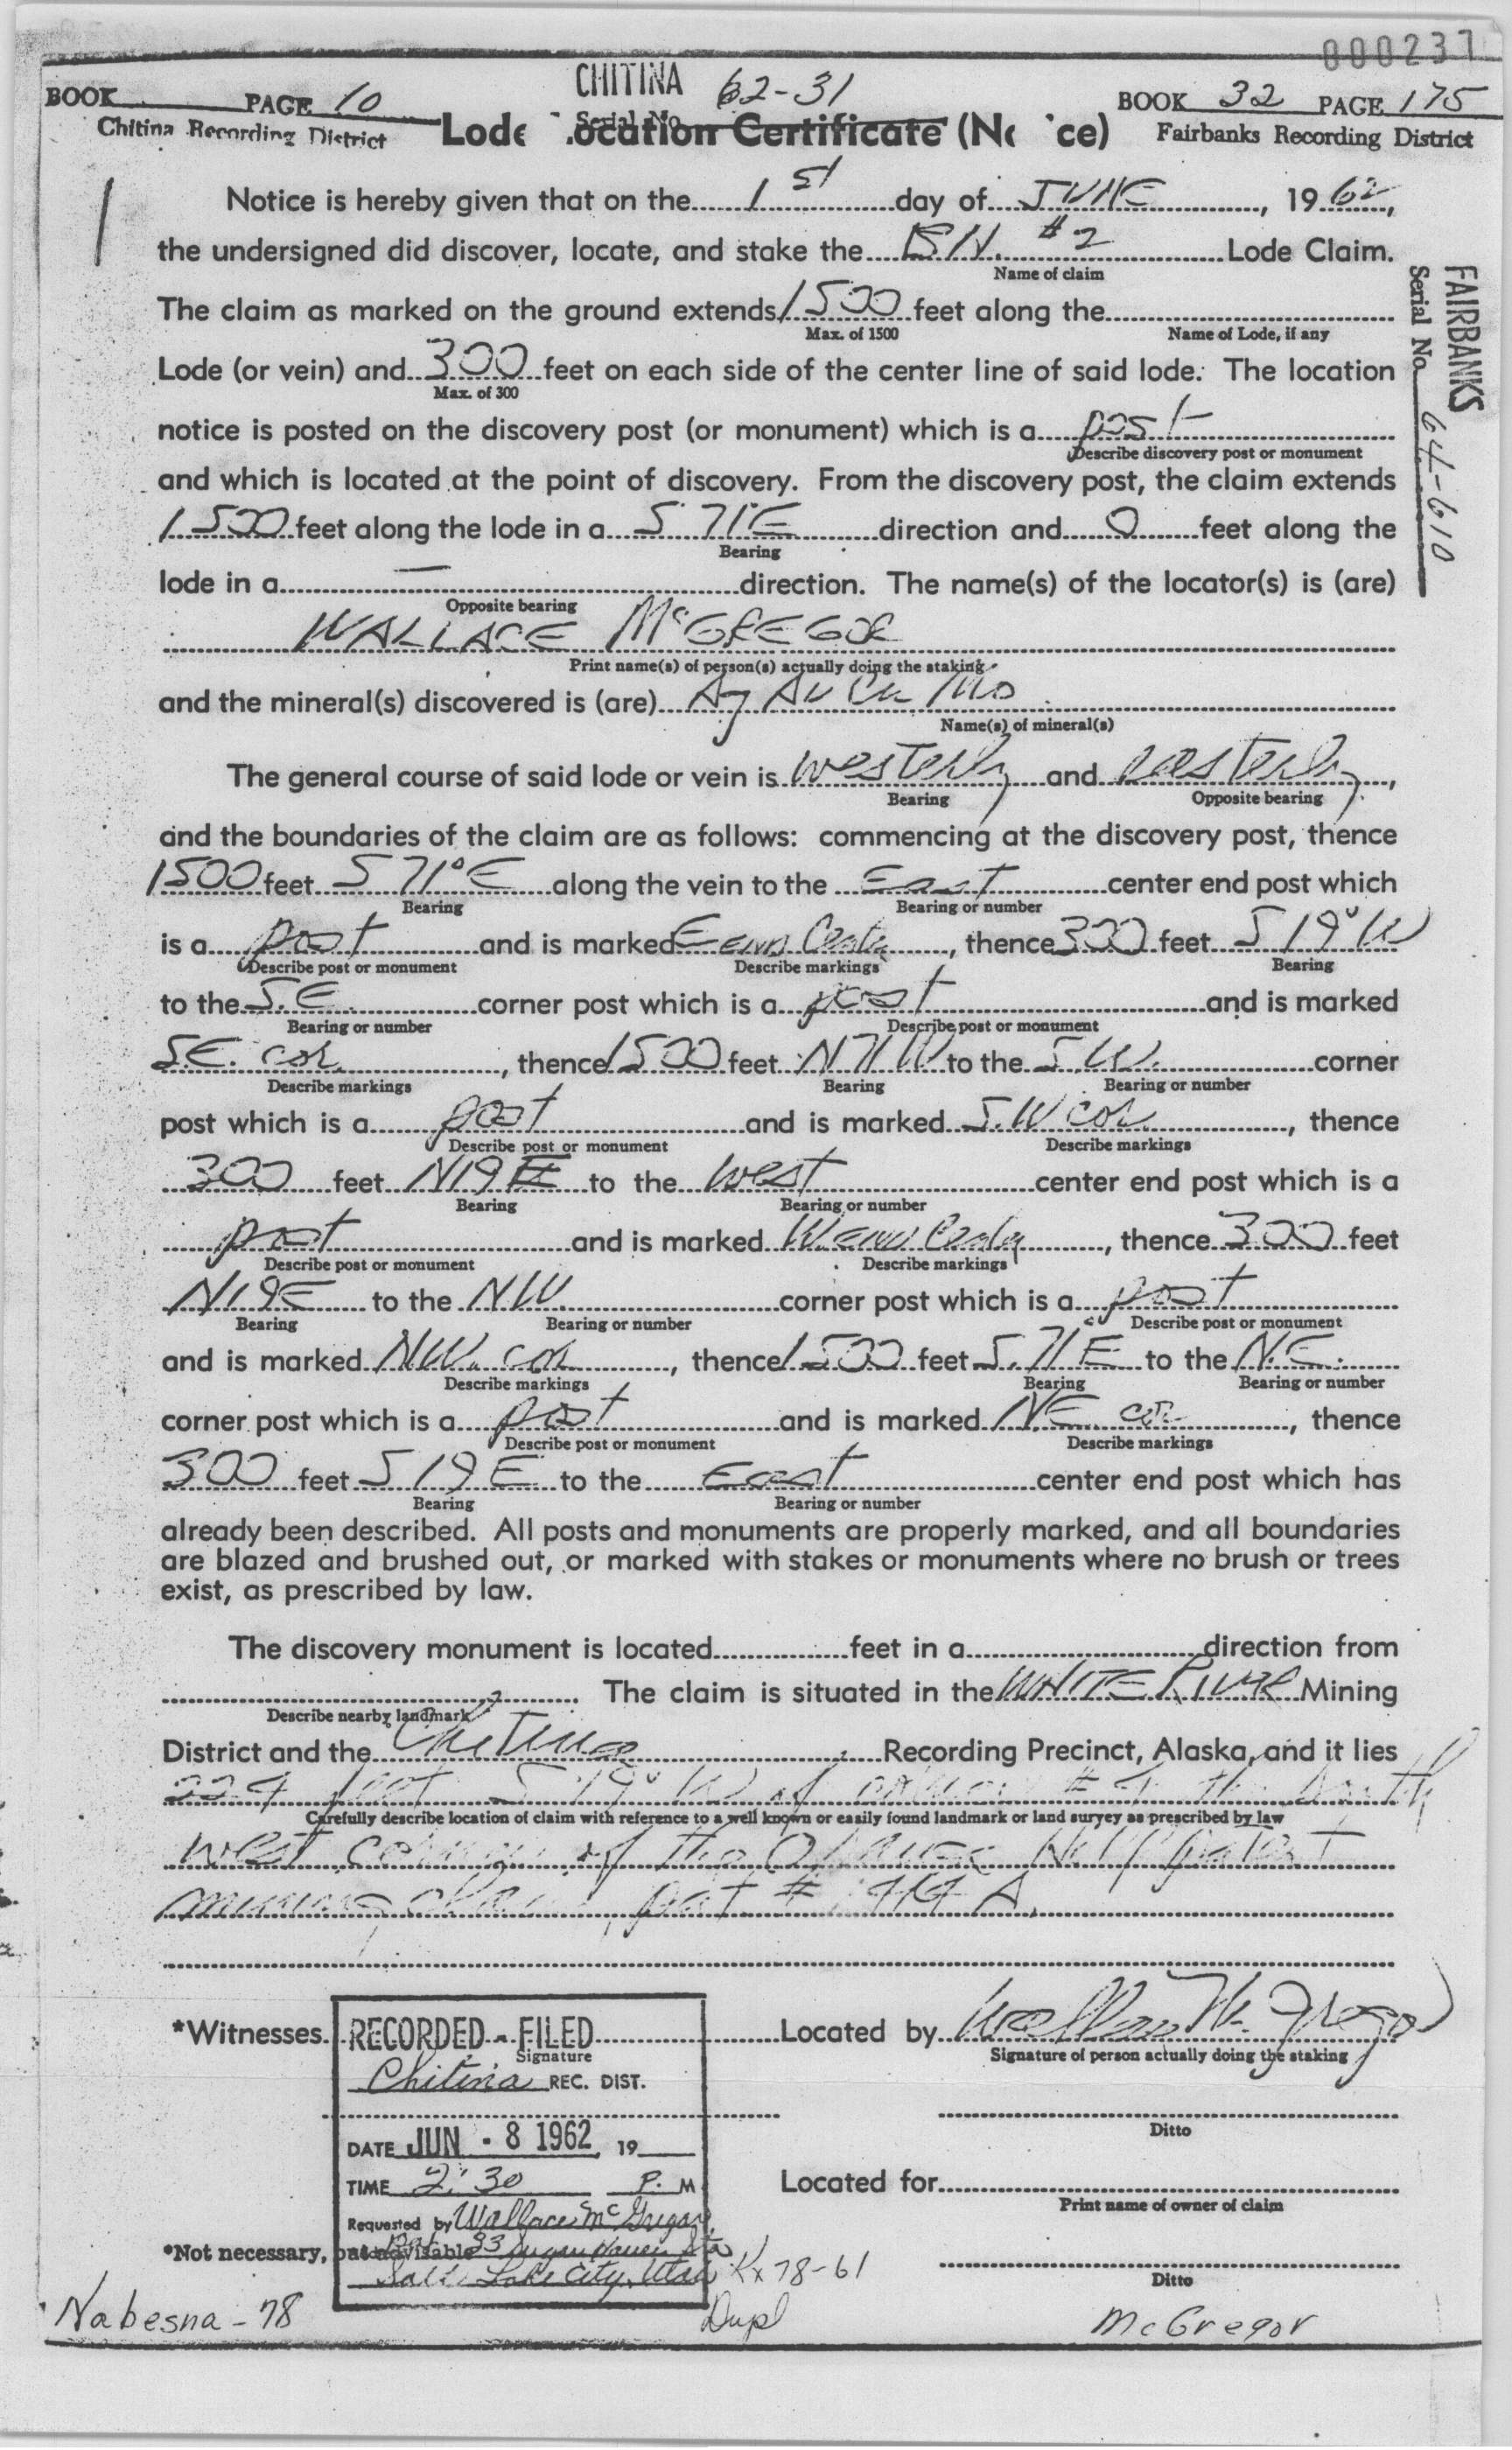 000237
BOOK PAGE 10
Chitina Recording District
CHITINA
Serial No. 62-31
BOOK 32 PAGE 175
Fairbanks Recording District
Lode Location Certificate (No ce)
Notice is hereby given that on the 1st day of JUNE, 1962,
the undersigned did discover, locate, and stake the B.H. #2 Lode Claim.
Name of claim
The claim as marked on the ground extends 1500 feet along the
Max. of 1500 Name of Lode, if any
Lode (or vein) and 300 feet on each side of the center line of said lode. The location
Max. of 300
notice is posted on the discovery post (or monument) which is a post
Describe discovery post or monument
and which is located at the point of discovery. From the discovery post, the claim extends
1500 feet along the lode in a S 71°E direction and 0 feet along the
Bearing
lode in a — direction. The name(s) of the locator(s) is (are)
Opposite bearing
WALLACE McGREGOR
Print name(s) of person(s) actually doing the staking
and the mineral(s) discovered is (are) Ag Au Cu Mo
Name(s) of mineral(s)
The general course of said lode or vein is westerly and easterly,
Bearing Opposite bearing
and the boundaries of the claim are as follows: commencing at the discovery post, thence
1500 feet S 71°E along the vein to the East center end post which
Bearing Bearing or number
is a post and is marked E END Center, thence 300 feet S 19°W
Describe post or monument Describe markings Bearing
to the S.E. corner post which is a post and is marked
Bearing or number Describe post or monument
S.E. cor., thence 1500 feet N 71 W to the S.W. corner
Describe markings Bearing Bearing or number
post which is a post and is marked S.W cor., thence
Describe post or monument Describe markings
300 feet N19E to the West center end post which is a
Bearing Bearing or number
post and is marked W. END Center, thence 300 feet
Describe post or monument Describe markings
N19E to the NW corner post which is a post
Bearing Bearing or number Describe post or monument
and is marked NW. cor, thence 1500 feet S.71E to the N.E.
Describe markings Bearing Bearing or number
corner post which is a post and is marked N.E. cor, thence
Describe post or monument Describe markings
300 feet S 19 E to the East center end post which has
Bearing Bearing or number
already been described. All posts and monuments are properly marked, and all boundaries
are blazed and brushed out, or marked with stakes or monuments where no brush or trees
exist, as prescribed by law.
The discovery monument is located feet in a direction from
. The claim is situated in the WHITE RIVER Mining
Describe nearby landmark
District and the Chitina Recording Precinct, Alaska, and it lies
224 feet S 19° W of corner # 4 the South
Carefully describe location of claim with reference to a well known or easily found landmark or land survey as prescribed by law
west corner of the Orange Hill patent
mining claim pat #
*Witnesses Located by Wallace McGregor
Signature Signature of person actually doing the staking
RECORDED - FILED
Chitina REC. DIST.
Ditto
DATE JUN - 8 1962, 19
TIME 2:30 P. M
Located for
Print name of owner of claim
Requested by Wallace McGregor
*Not necessary, but advisable
Box 93 Sugar House Sta
Salt Lake City, Utah
Ditto
Kx 78-61
Nabesna - 78
Dupl
McGregor
FAIRBANKS
Serial No. 64-610